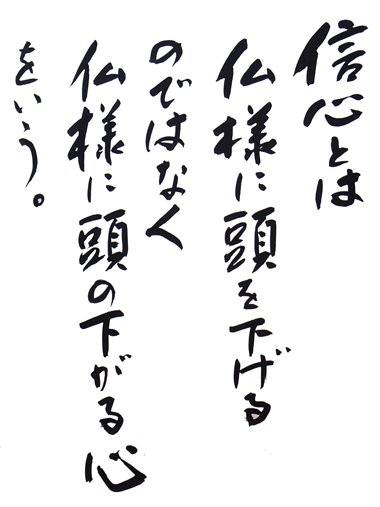 信心とは
仏様に頭を下げる
のではなく
仏様に頭の下がる心
をいう。